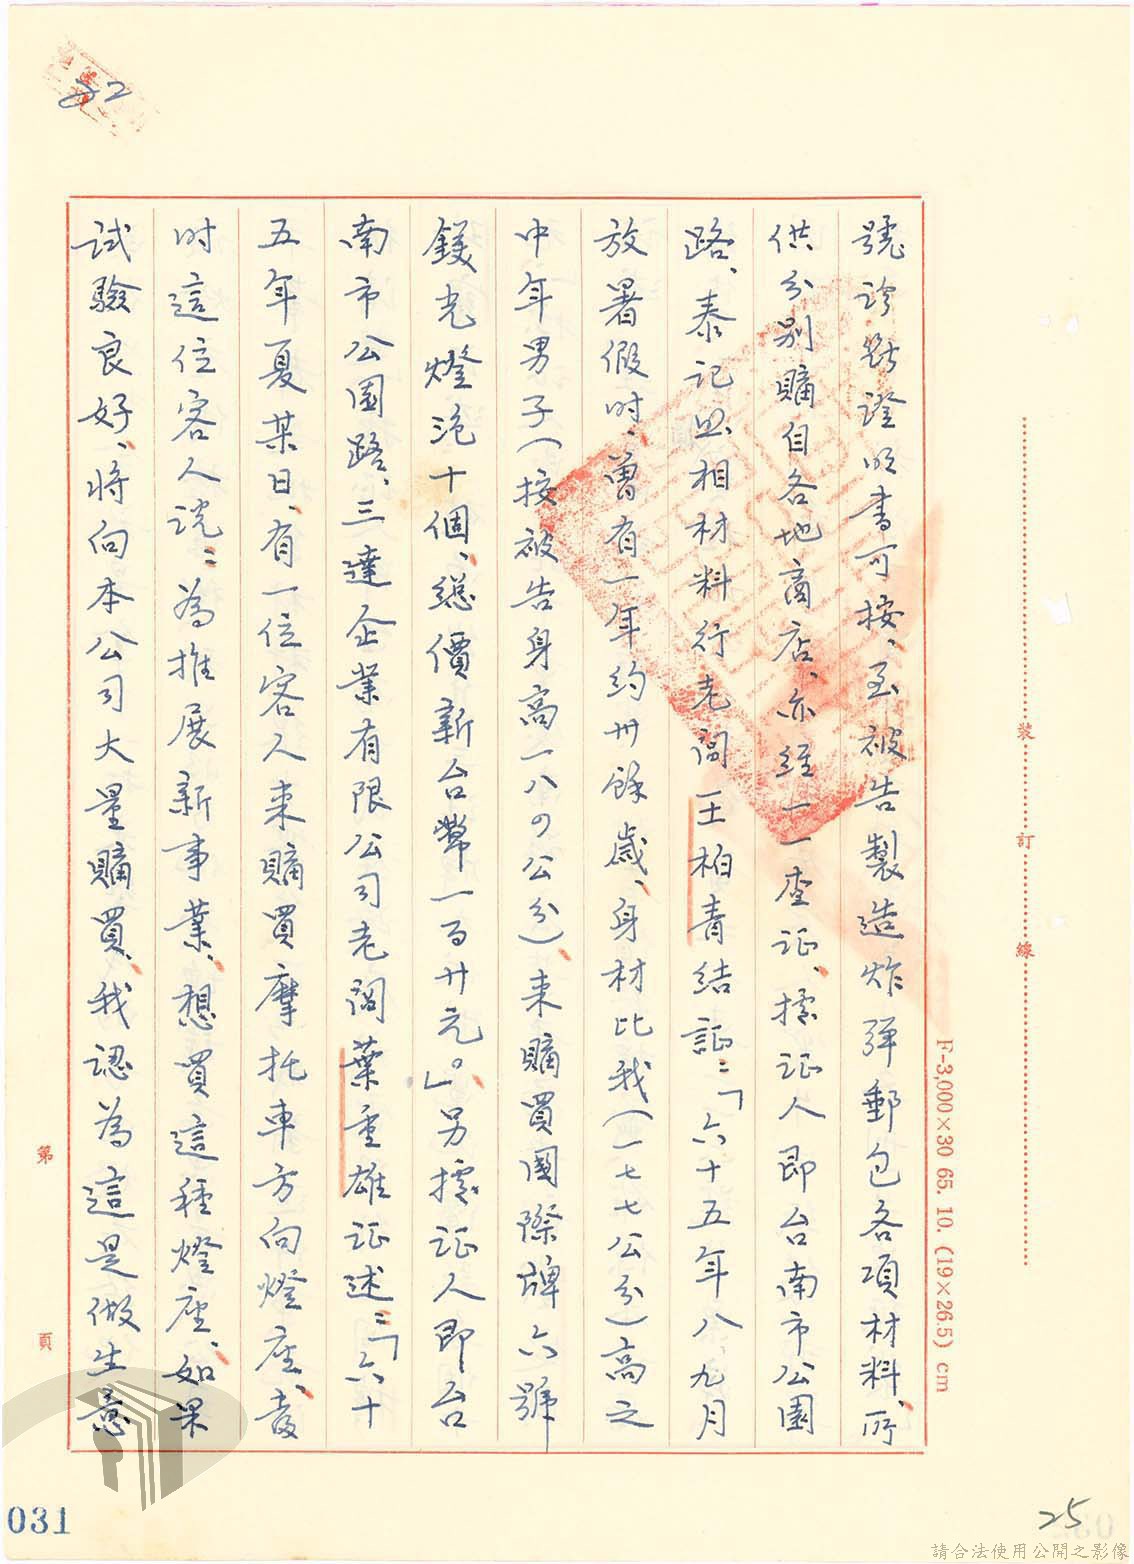 號診斷證明書可按、至被告製造炸彈郵包各項材料、所
供分別購自各地商店、亦經一一查証、據証人即台南市公園
路、泰記照相材料行老闆王柏青結証：「六十五年八九月
放署假時、曾有一年約卅餘歲、身材比我（一七七公分）高之
中年男子（按被告身高一八〇公分）、来購買國際牌六號
鎂光燈泡十個、總價新台幣一百廿元。」另據証人即台
南市公園路、三達企業有限公司老闆葉重雄証述：「六十
五年夏某日、有一位客人来購買摩托車方向燈座、當
时這位客人說：為推展新事業、想買這種燈座、如果
試驗良好、將向本公司大量購買、我認為這是做生意
裝訂線
F-3,000×30 65. 10. (19×26.5) cm
第 頁
031
25
請合法使用公開之影像